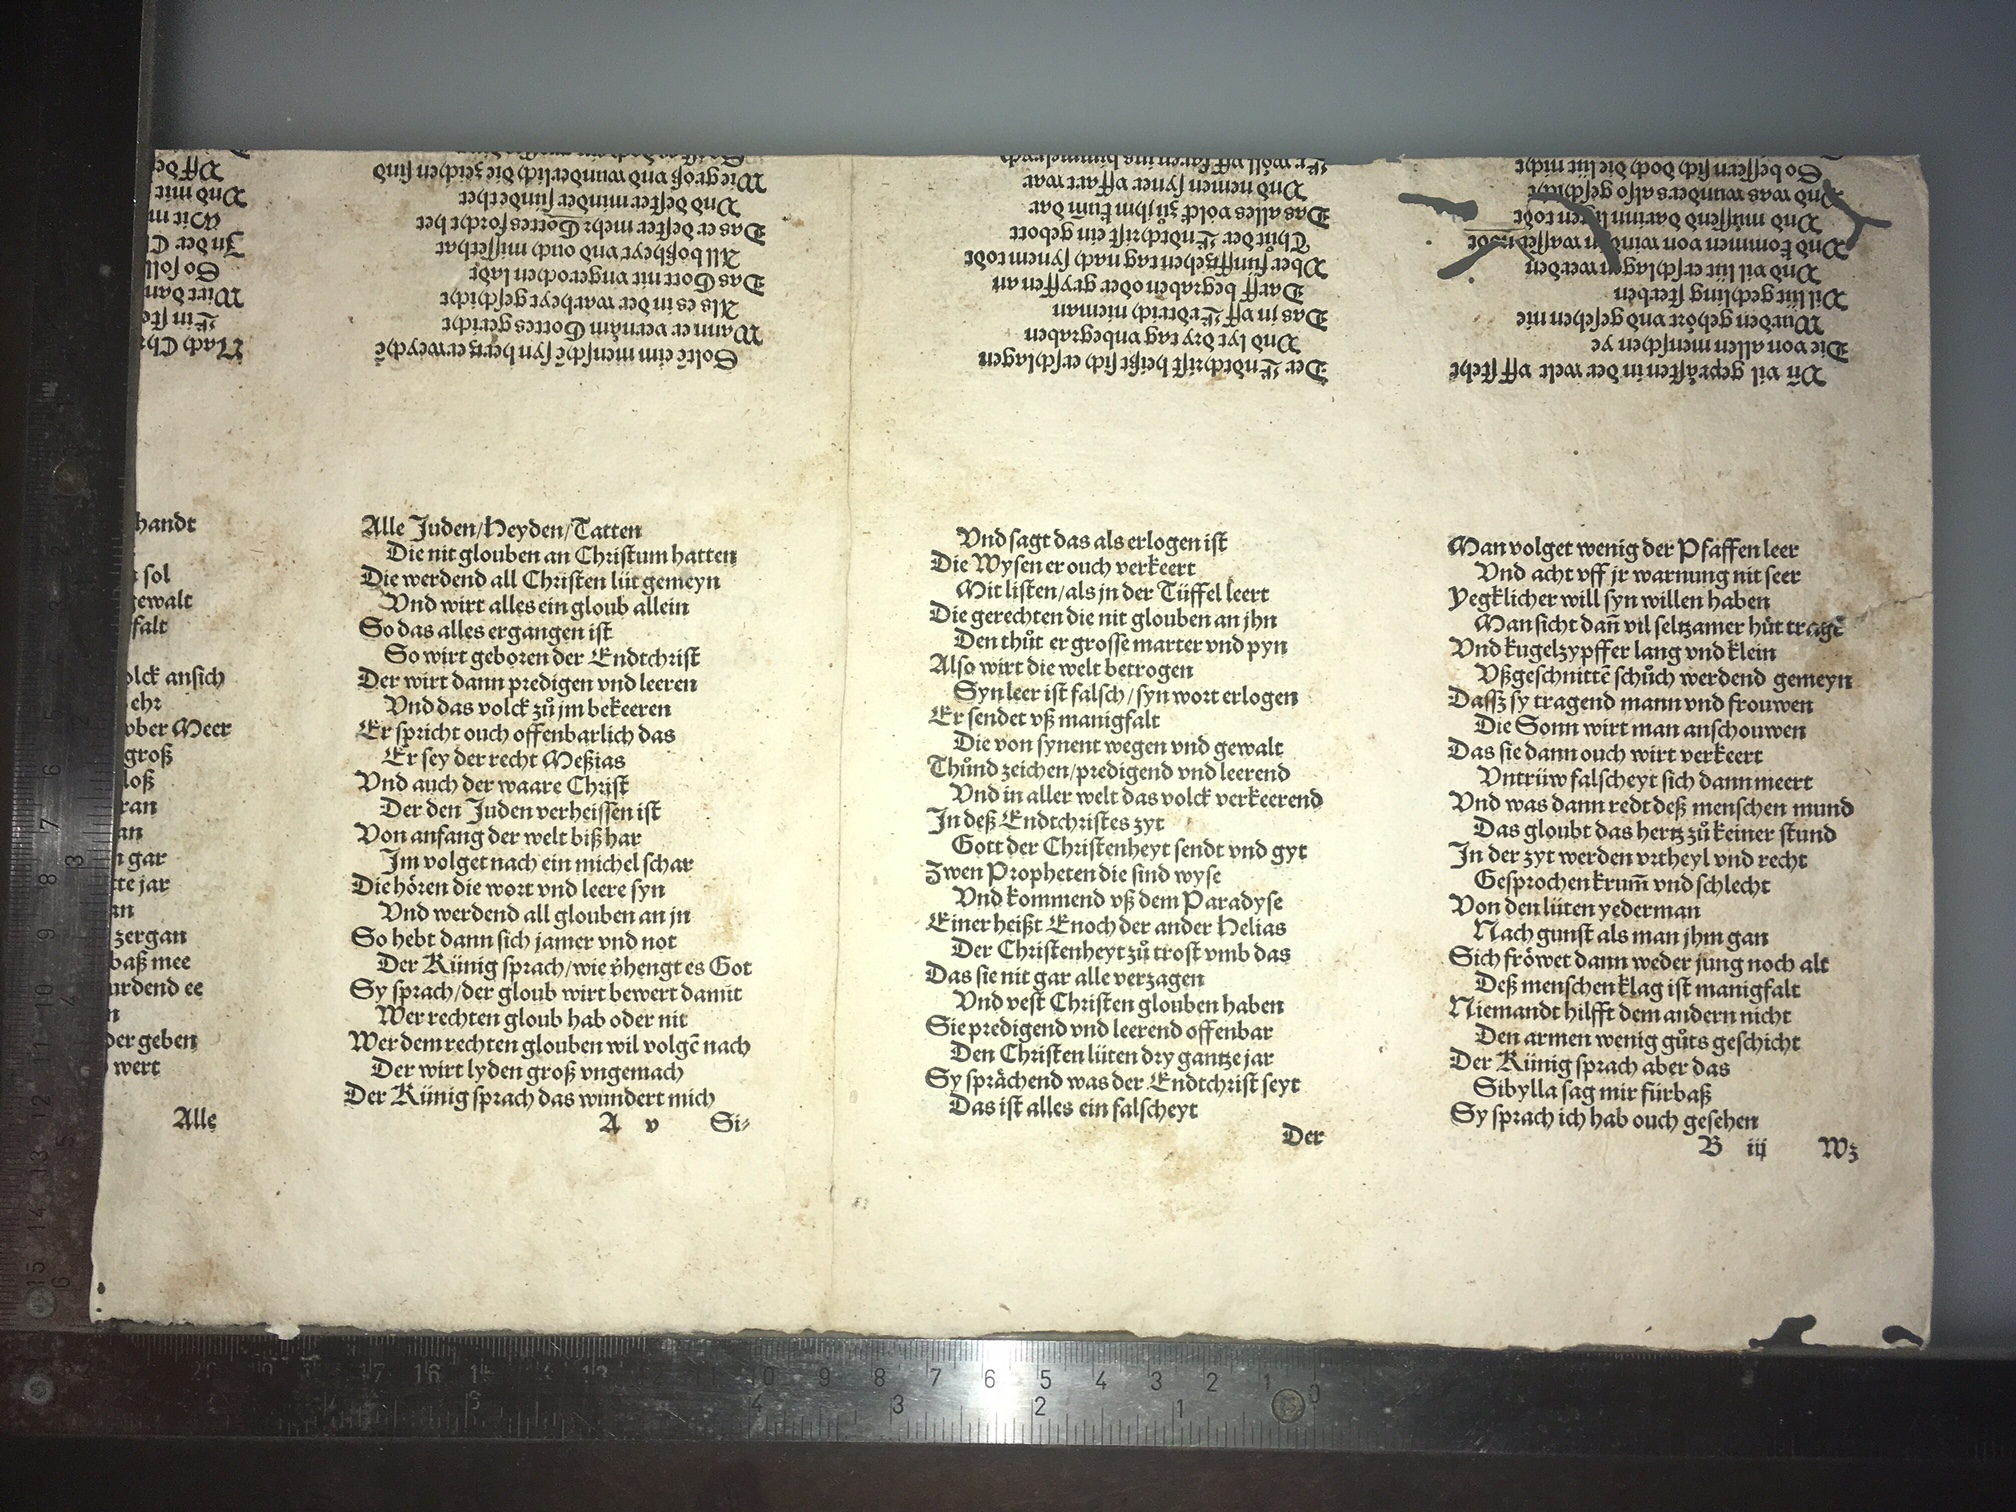 handt
sol
gewalt
falt
olck ansich
ehr
vber Meer
groß
loß
ran
an
gar
tte jar
an
zergan
baß mee
urdend ee
n
der geben
wert
Alle
Alle Juden/Heyden/Tatten
Die nit glouben an Christum hatten
Die werdend all Christen lüt gemeyn
Vnd wirt alles ein gloub allein
So das alles ergangen ist
So wirt geboren der Endtchrist
Der wirt dann predigen vnd leeren
Vnd das volck zů jm bekeeren
Er spricht ouch offenbarlich das
Er sey der recht Meßias
Vnd auch der waare Christ
Der den Juden verheissen ist
Von anfang der welt biß har
Im volget nach ein michel schar
Die hören die wort vnd leere syn
Vnd werdend all glouben an jn
So hebt dann sich jamer vnd not
Der Künig sprach/wie v̈hengt es Got
Sy sprach/der gloub wirt bewert damit
Wer rechten gloub hab oder nit
Wer dem rechten glouben wil volgē nach
Der wirt lyden groß vngemach
Der Künig sprach das wundert mich
A v Si⸗
Vnd sagt das als erlogen ist
Die Wysen er ouch verkeert
Mit listen/als jn der Tüffel leert
Die gerechten die nit glouben an jhn
Den thůt er grosse marter vnd pyn
Also wirt die welt betrogen
Syn leer ist falsch/syn wort erlogen
Er sendet vß manigfalt
Die von synent wegen vnd gewalt
Thůnd zeichen/predigend vnd leerend
Vnd in aller welt das volck verkeerend
In deß Endtchristes zyt
Gott der Christenheyt sendt vnd gyt
Zwen Propheten die sind wyse
Vnd kommend vß dem Paradyse
Einer heißt Enoch der ander Helias
Der Christenheyt zů trost vmb das
Das sie nit gar alle verzagen
Vnd vest Christen glouben haben
Sie predigend vnd leerend offenbar
Den Christen lüten dry gantze jar
Sy sprächend was der Endtchrist seyt
Das ist alles ein falscheyt
Der
Man volget wenig der Pfaffen leer
Vnd acht vff jr warnung nit seer
Yegklicher will syn willen haben
Man sicht dañ vil seltzamer hüt tragē
Vnd kugelzypffer lang vnd klein
Vßgeschnittē schůch werdend gemeyn
Dassz sy tragend mann vnd frouwen
Die Sonn wirt man anschouwen
Das sie dann ouch wirt verkeert
Vntrüw falscheyt sich dann meert
Vnd was dann redt deß menschen mund
Das gloubt das hertz zů keiner stund
In der zyt werden vrtheyl vnd recht
Gesprochen krum̃ vnd schlecht
Von den lüten yederman
Nach gunst als man jhm gan
Sich fröwet dann weder jung noch alt
Deß menschen klag ist manigfalt
Niemandt hilfft dem andern nicht
Den armen wenig gůts geschicht
Der Künig sprach aber das
Sibylla sag mir fürbaß
Sy sprach ich hab ouch gesehen
B iij Wz
Vñ vil geprästen in der welt vff steht
Die von allen menschen ye
Wurden gehört vnd gesehen nie
Vil lüt gechling sterben
Vnd vil lüt erschlagen werden
Vnd kommen von wind von wassers nodt
Vnd müssend darinn ligen todt
Vnd was wunders also geschicht
So bessern sich doch die lüt nicht
Der Endtchrist heißt sich erschlagen
Vnd lyt dry tag vnbegraben
Das jn vff Erdtrich nieman
Darff begraben oder gryffen an
Vber fünfftzehen tag nach synem todt
Thůt der Endtchrist ein gebott
Das alles volck zů jhm kum̃ dar
Vnd nemen syner vffart war
Er wöll vff faren ins himmelrych
Solte eim menschē syn hertz erweychē
Wann er vernäm Gottes gericht
Als es in der warheyt geschicht
Das Gott nit vngerochen ladt
All boßheyt vnd ouch missethat
Das er dester mehr Gottes forcht het
Vnd dester minder sünde thet
Wie groß vnd wunderlich die zeichen sind
Nach Chr
Ein ste
Wirt dan
So soll
In der C
Wir m
Vnd mit
Vff de